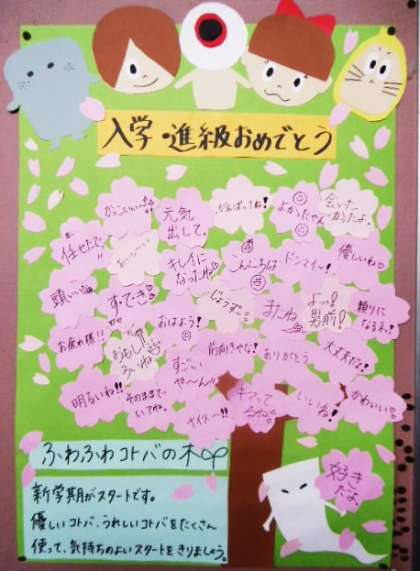 入学・進級おめでとう
かっこいい〜!!
元気
出して。
がんばってね!
よかったやん
会いた
かったよ。
任せたで!!
キレイに
なったね
こんにちは
ドンマイ〜!
優しいね
頭いいね
すてき!
じょうず
またね
よっ!
男前!
頼りに
なるネ!
お疲れ様!!
おもしろいね
おはよう!
すごい
や〜ん!!
前向きやな!
ありがとう
大丈夫だよ!
明るいね!!
そのままで
いてね。
ナイス〜!!
いいね!
かわいい
ふわふわコトバの木
好き
だよ。
新学期がスタートです。
優しいコトバ、うれしいコトバをたくさん
使って、気持ちのよいスタートをきりましょう。